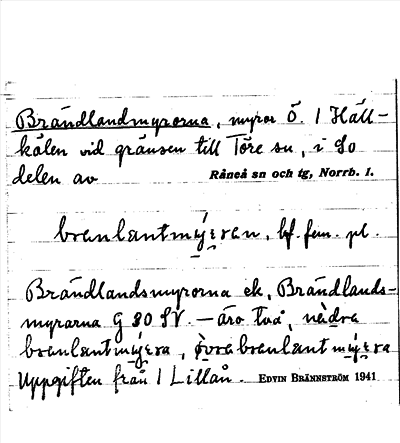 Brändlandmyrorna, myror Ö. 1 Häll-
kölen vid gränsen till Töre sn, i So
delen av Råneå sn och tg, Norrb. l.
branlantmýran, bf. fem. pl.
Brändlandsmyrorna ek, Brändlands-
myrarna G 80 SV. — äro två, nèdra
branlantmýra, ö̀vra branlant mýra
Uppgiften från 1 Lillån. EDVIN BRÄNNSTRÖM 1941